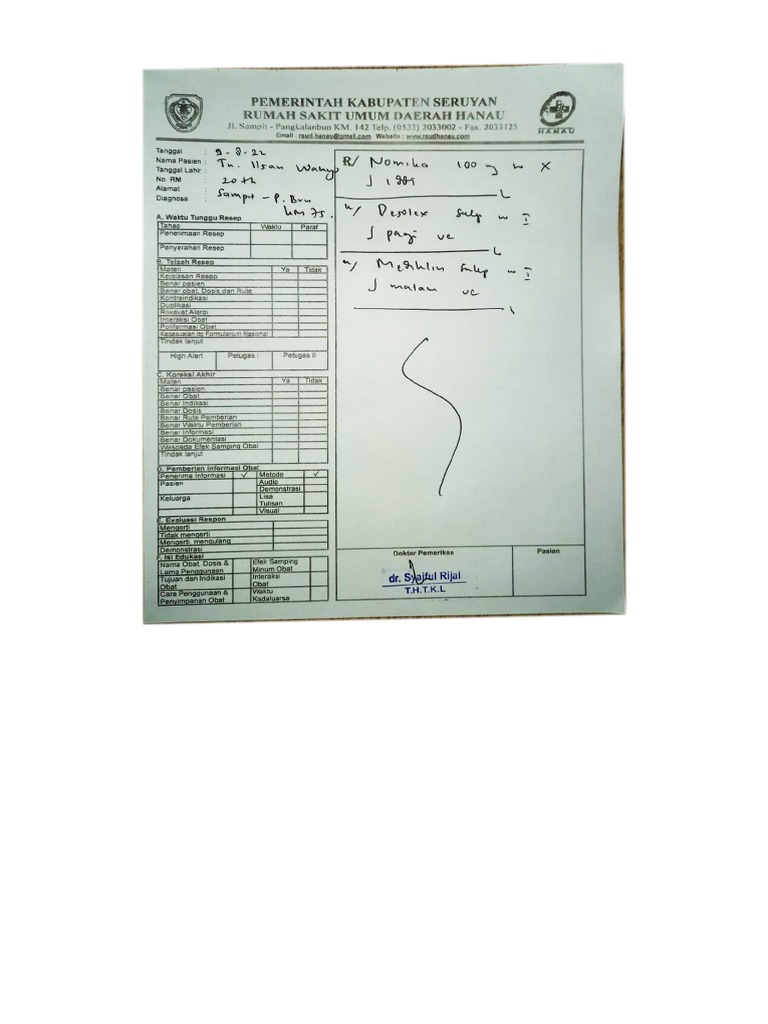 PEMERINTAH KABUPATEN SERUYAN
RUMAH SAKIT UMUM DAERAH HANAU
Jl. Sampit - Pangkalanbun KM. 142 Telp. (0532) 2033002 - Fax. 2033125
Email : rsud.hanau@gmail.com Website : www.rsudhanau.com
HANAU
Tanggal : 9-8-22
Nama Pasien : Tn. Ilsan
Tanggal Lahir :
No. RM : 20 th
Alamat : Sampit - P. Bun
Diagnosa : KM 75.
A. Waktu Tunggu Resep
Tahap Waktu Paraf
Penerimaan Resep
Penyerahan Resep
B. Telaah Resep
Materi Ya Tidak
Kejelasan Resep
Benar pasien
Benar obat, Dosis dan Rute
Kontraindikasi
Duplikasi
Riwayat Alergi
Interaksi Obat
Polifarmasi Obat
Kesesuaian dg Formularium Nasional
Tindak lanjut
High Alert Petugas I Petugas II
C. Koreksi Akhir
Materi Ya Tidak
Benar pasien
Benar Obat
Benar Indikasi
Benar Dosis
Benar Rute Pemberian
Benar Waktu Pemberian
Benar Informasi
Benar Dokumentasi
Waspada Efek Samping Obat
Tindak lanjut
D. Pemberian Informasi Obat
Penerima Informasi ✓ Metode ✓
Pasien Audio
Demonstrasi
Keluarga Lisa
Tulisan
Visual
E. Evaluasi Respon
Mengerti
Tidak mengerti
Mengerti, mengulang
Demonstrasi
F. Isi Edukasi
Nama Obat, Dosis & Lama Penggunaan
Efek Samping Minum Obat
Tujuan dan Indikasi Obat
Interaksi Obat
Cara Penggunaan & Penyimpanan Obat
Waktu Kadaluarsa
R/ Nomika 100 mg no X
R/ Desolex salp no I
pagi ue
R/ salp no I
malam ue
Dokter Pemeriksa
Pasien
dr. Syaiful Rijal
T.H.T.K.L